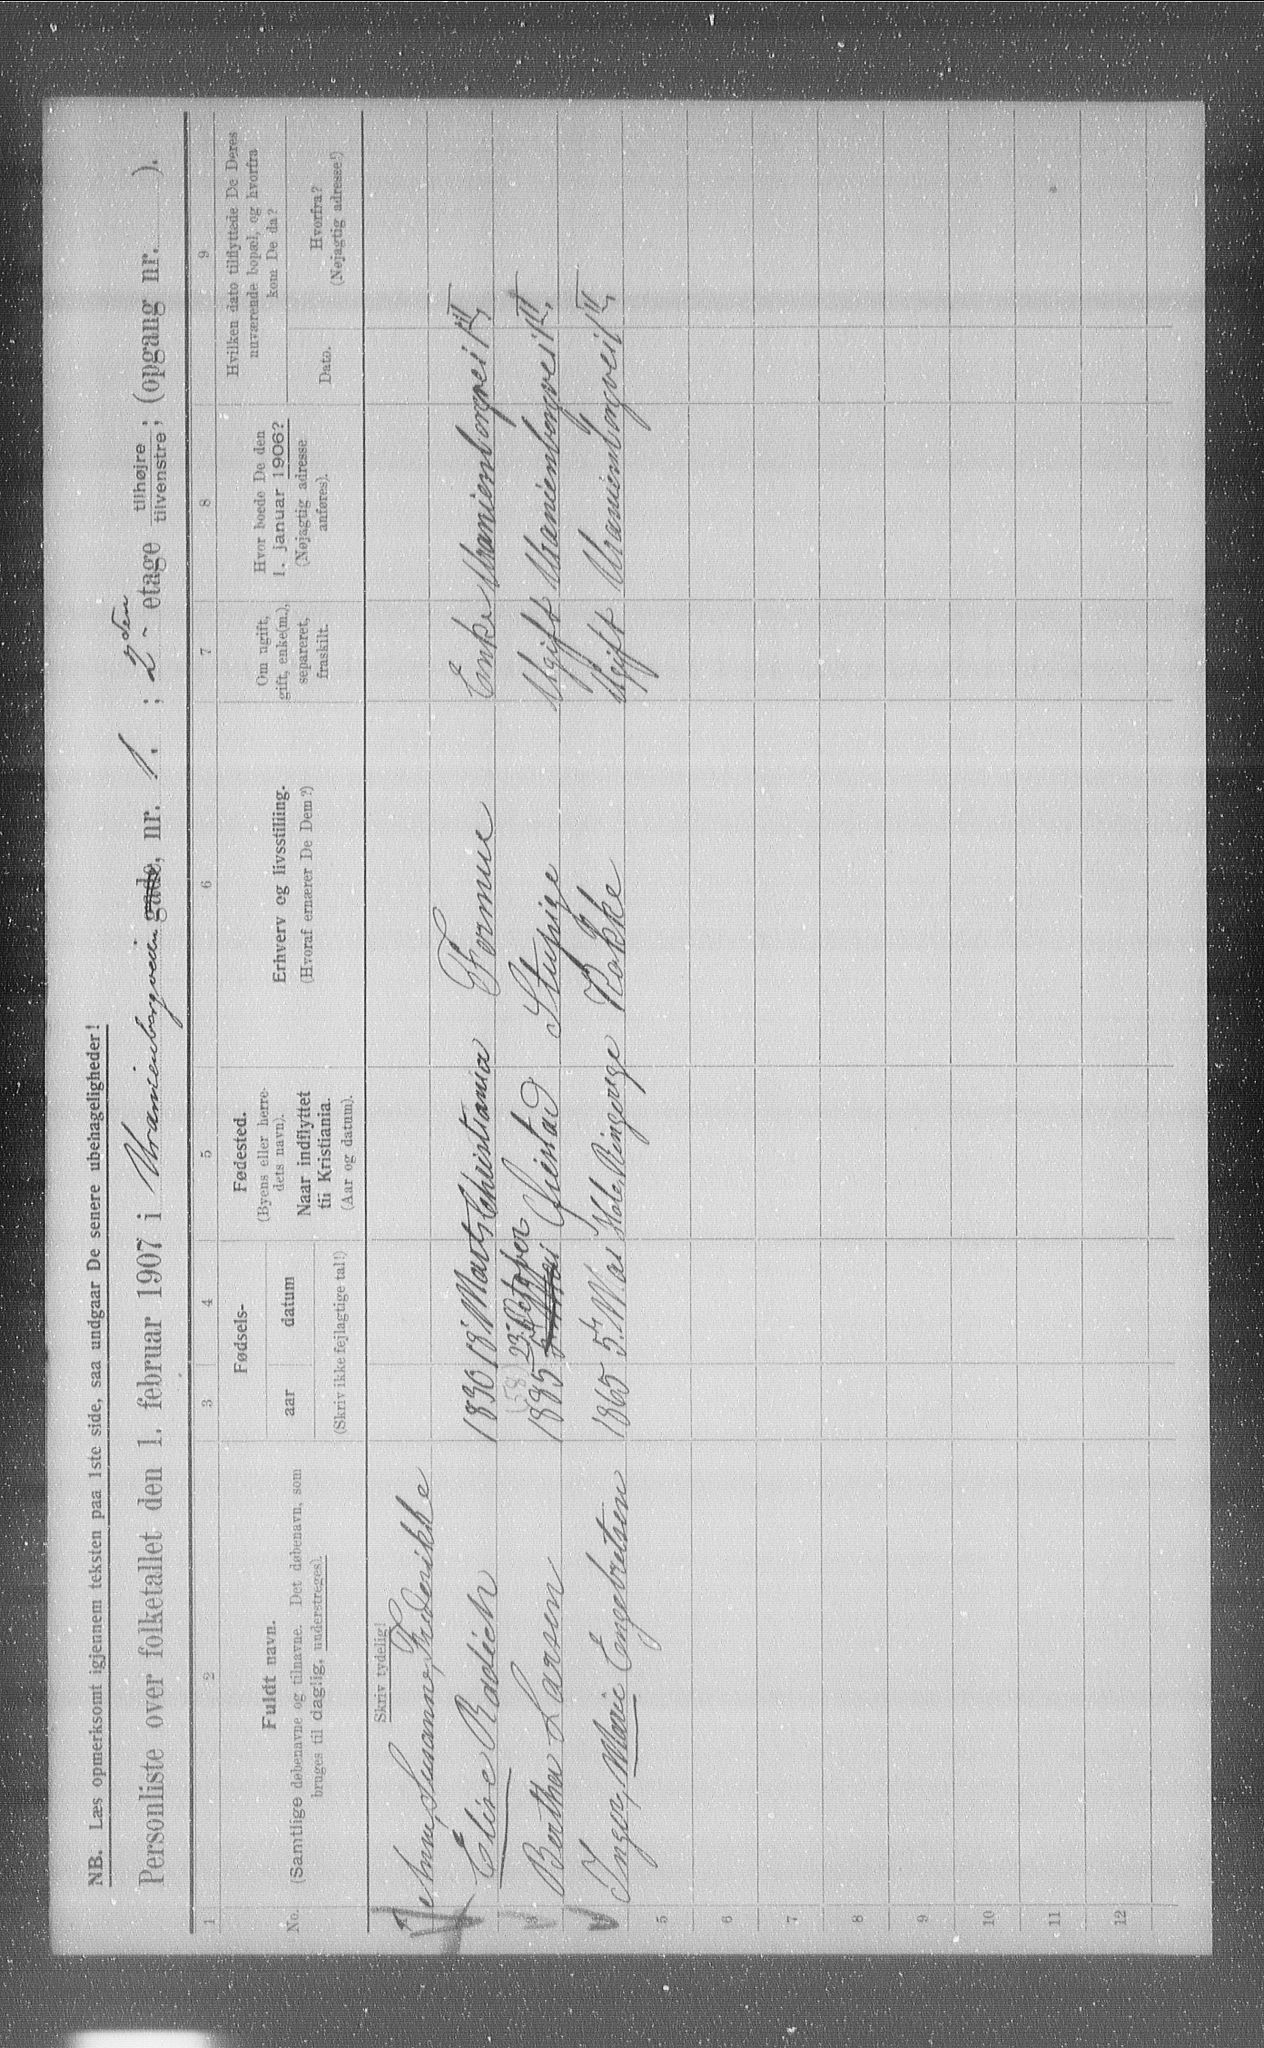 NB. Læs opmerksomt igjennem teksten paa 1ste side, saa undgaar De senere ubehageligheder!
Personliste over folketallet den 1. februar 1907 i Uranienborgveien gade, nr. 1. ; 2den etage tilhøjre tilvenstre; (opgang nr. ).
1 2 3 4 5 6 7 8 9
No.
Fuldt navn.
(Samtlige døbenavne og tilnavne. Det døbenavn, som
bruges til daglig, understreges).
Fødsels-
aar datum
(Skriv ikke fejlagtige tal!)
Fødested.
(Byens eller herre-
dets navn).
Naar indflyttet
til Kristiania.
(Aar og datum).
Erhverv og livsstilling.
(Hvoraf ernærer De Dem?)
Om ugift,
gift, enke(m.),
separeret,
fraskilt.
Hvor boede De den
1. januar 1906?
(Nøjagtig adresse
anføres).
Hvilken dato tilflyttede De Deres
nuværende bopæl, og hvorfra
kom De da?
Dato.
Hvorfra?
(Nøjagtig adresse!)
Skriv tydelig!
Anne Susanne Frederikke
Elise Radich 1830 18 Marts Christiania Formue Enke Uranienborgvei 1 II
(58) 23 October
3 Berthe Larsen 1885 Mai Ugift Uranienborgvei 1 II
Inger Marie Engebretsen 1865 5 Mai Hole Ringerige Kokke Ugift Uranienborgvei 1 II
5
6
7
8
9
10
11
12